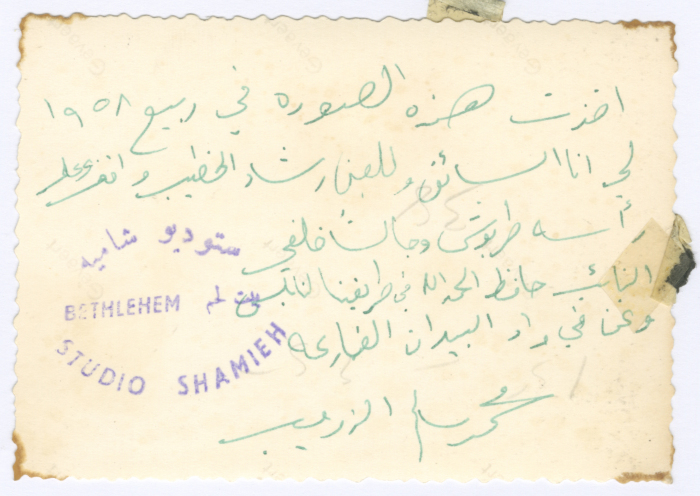 اخذت هذه الصوره في ربيع ١٩٥٨
لي انا السائق وللفنان رشاد الخطيب و على
رأسه طربوش وجالسًا خلفي
النائب حافظ الحمد الله في طريقنا لنابلس
ونحن في واد البيدان الفارعه
محمد سالم الذويب
ستوديو شاميه
BETHLEHEM بيت لحم
STUDIO SHAMIEH